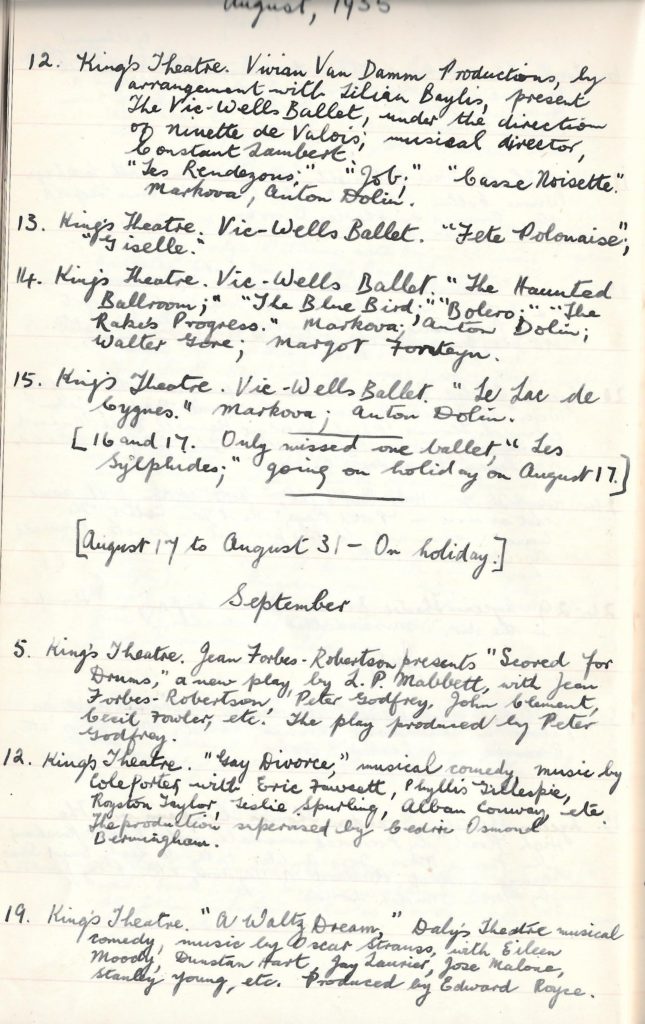 August, 1935
12. King's Theatre. Vivian Van Damm Productions, by
arrangement with Lilian Baylis, present
The Vic-Wells Ballet, under the direction
of Ninette de Valois; musical director,
Constant Lambert.
"Les Rendezvous;" "Job;" "Casse Noisette."
Markova, Anton Dolin.
13. King's Theatre. Vic-Wells Ballet. "Fete Polonaise";
"Giselle."
14. King's Theatre. Vic-Wells Ballet. "The Haunted
Ballroom;" "The Blue Bird;" "Bolero;" "The
Rake's Progress." Markova; Anton Dolin;
Walter Gore; Margot Fonteyn.
15. King's Theatre. Vic-Wells Ballet. "Le Lac de
Cygnes." Markova; Anton Dolin.
[16 and 17. Only missed one ballet, "Les
Sylphides;" going on holiday on August 17.]
[August 17 to August 31 - On holiday.]
September
5. King's Theatre. Jean Forbes-Robertson presents "Scored for
Drums," a new play by L. P. Mabbett, with Jean
Forbes-Robertson, Peter Godfrey, John Clement,
Cecil Fowler, etc. The play produced by Peter
Godfrey.
12. King's Theatre. "Gay Divorce," musical comedy, music by
Cole Porter, with Eric Fawcett, Phyllis Gillespie,
Royston Taylor, Leslie Spurling, Alban Conway, etc.
The production supervised by Cedric Osmond
Bermingham.
19. King's Theatre. "A Waltz Dream," Daly's Theatre musical
comedy, music by Oscar Strauss, with Eileen
Moody, Dunstan Hart, Jay Laurier, Jose Malone,
Stanley Young, etc. Produced by Edward Royce.